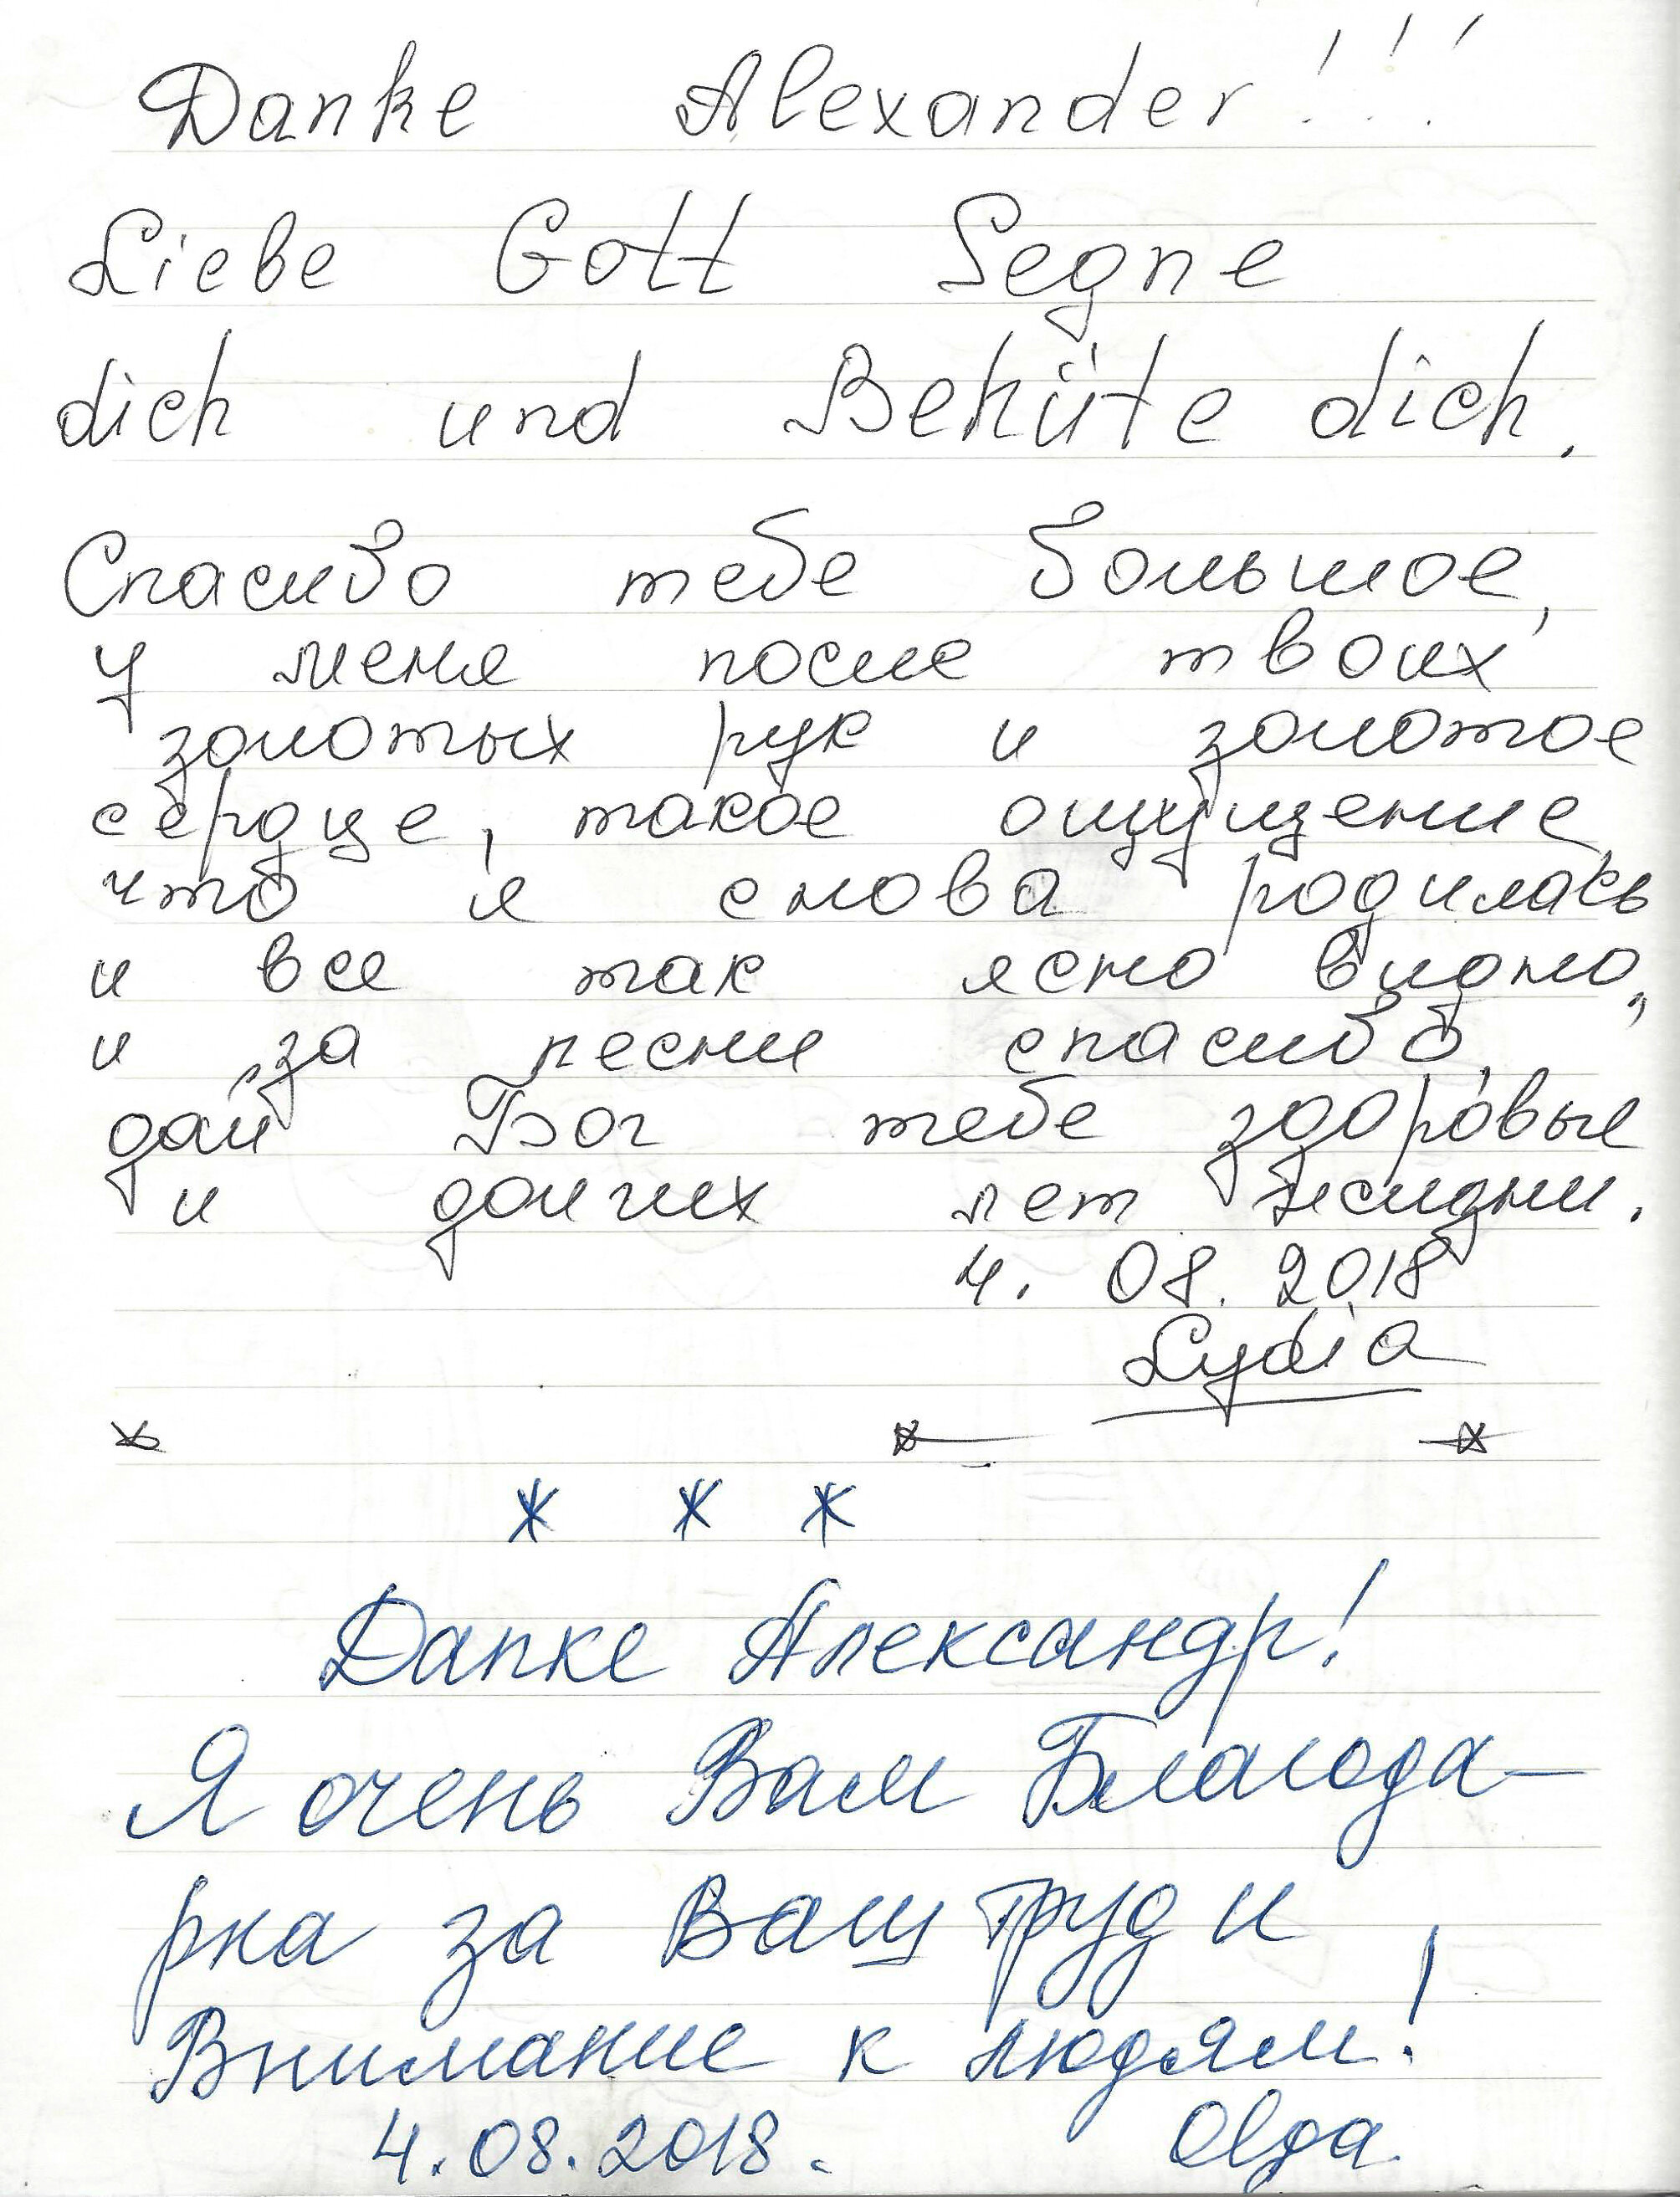 Danke Alexander!!!
Liebe Gott Segne
dich und Behüte dich.
Спасибо тебе большое,
у меня после твоих
золотых рук и золотое
сердце, такое ощущение,
что я снова родилась
и все так ясно видно,
и за песни спасибо,
дай Бог тебе здоровье
и долгих лет жизни.
4. 08. 2018
Lydia
* * *
Danke Александр!
Я очень Вам Благода-
рна за Ваш труд и
Внимание к людям!
4.08.2018. Olga.